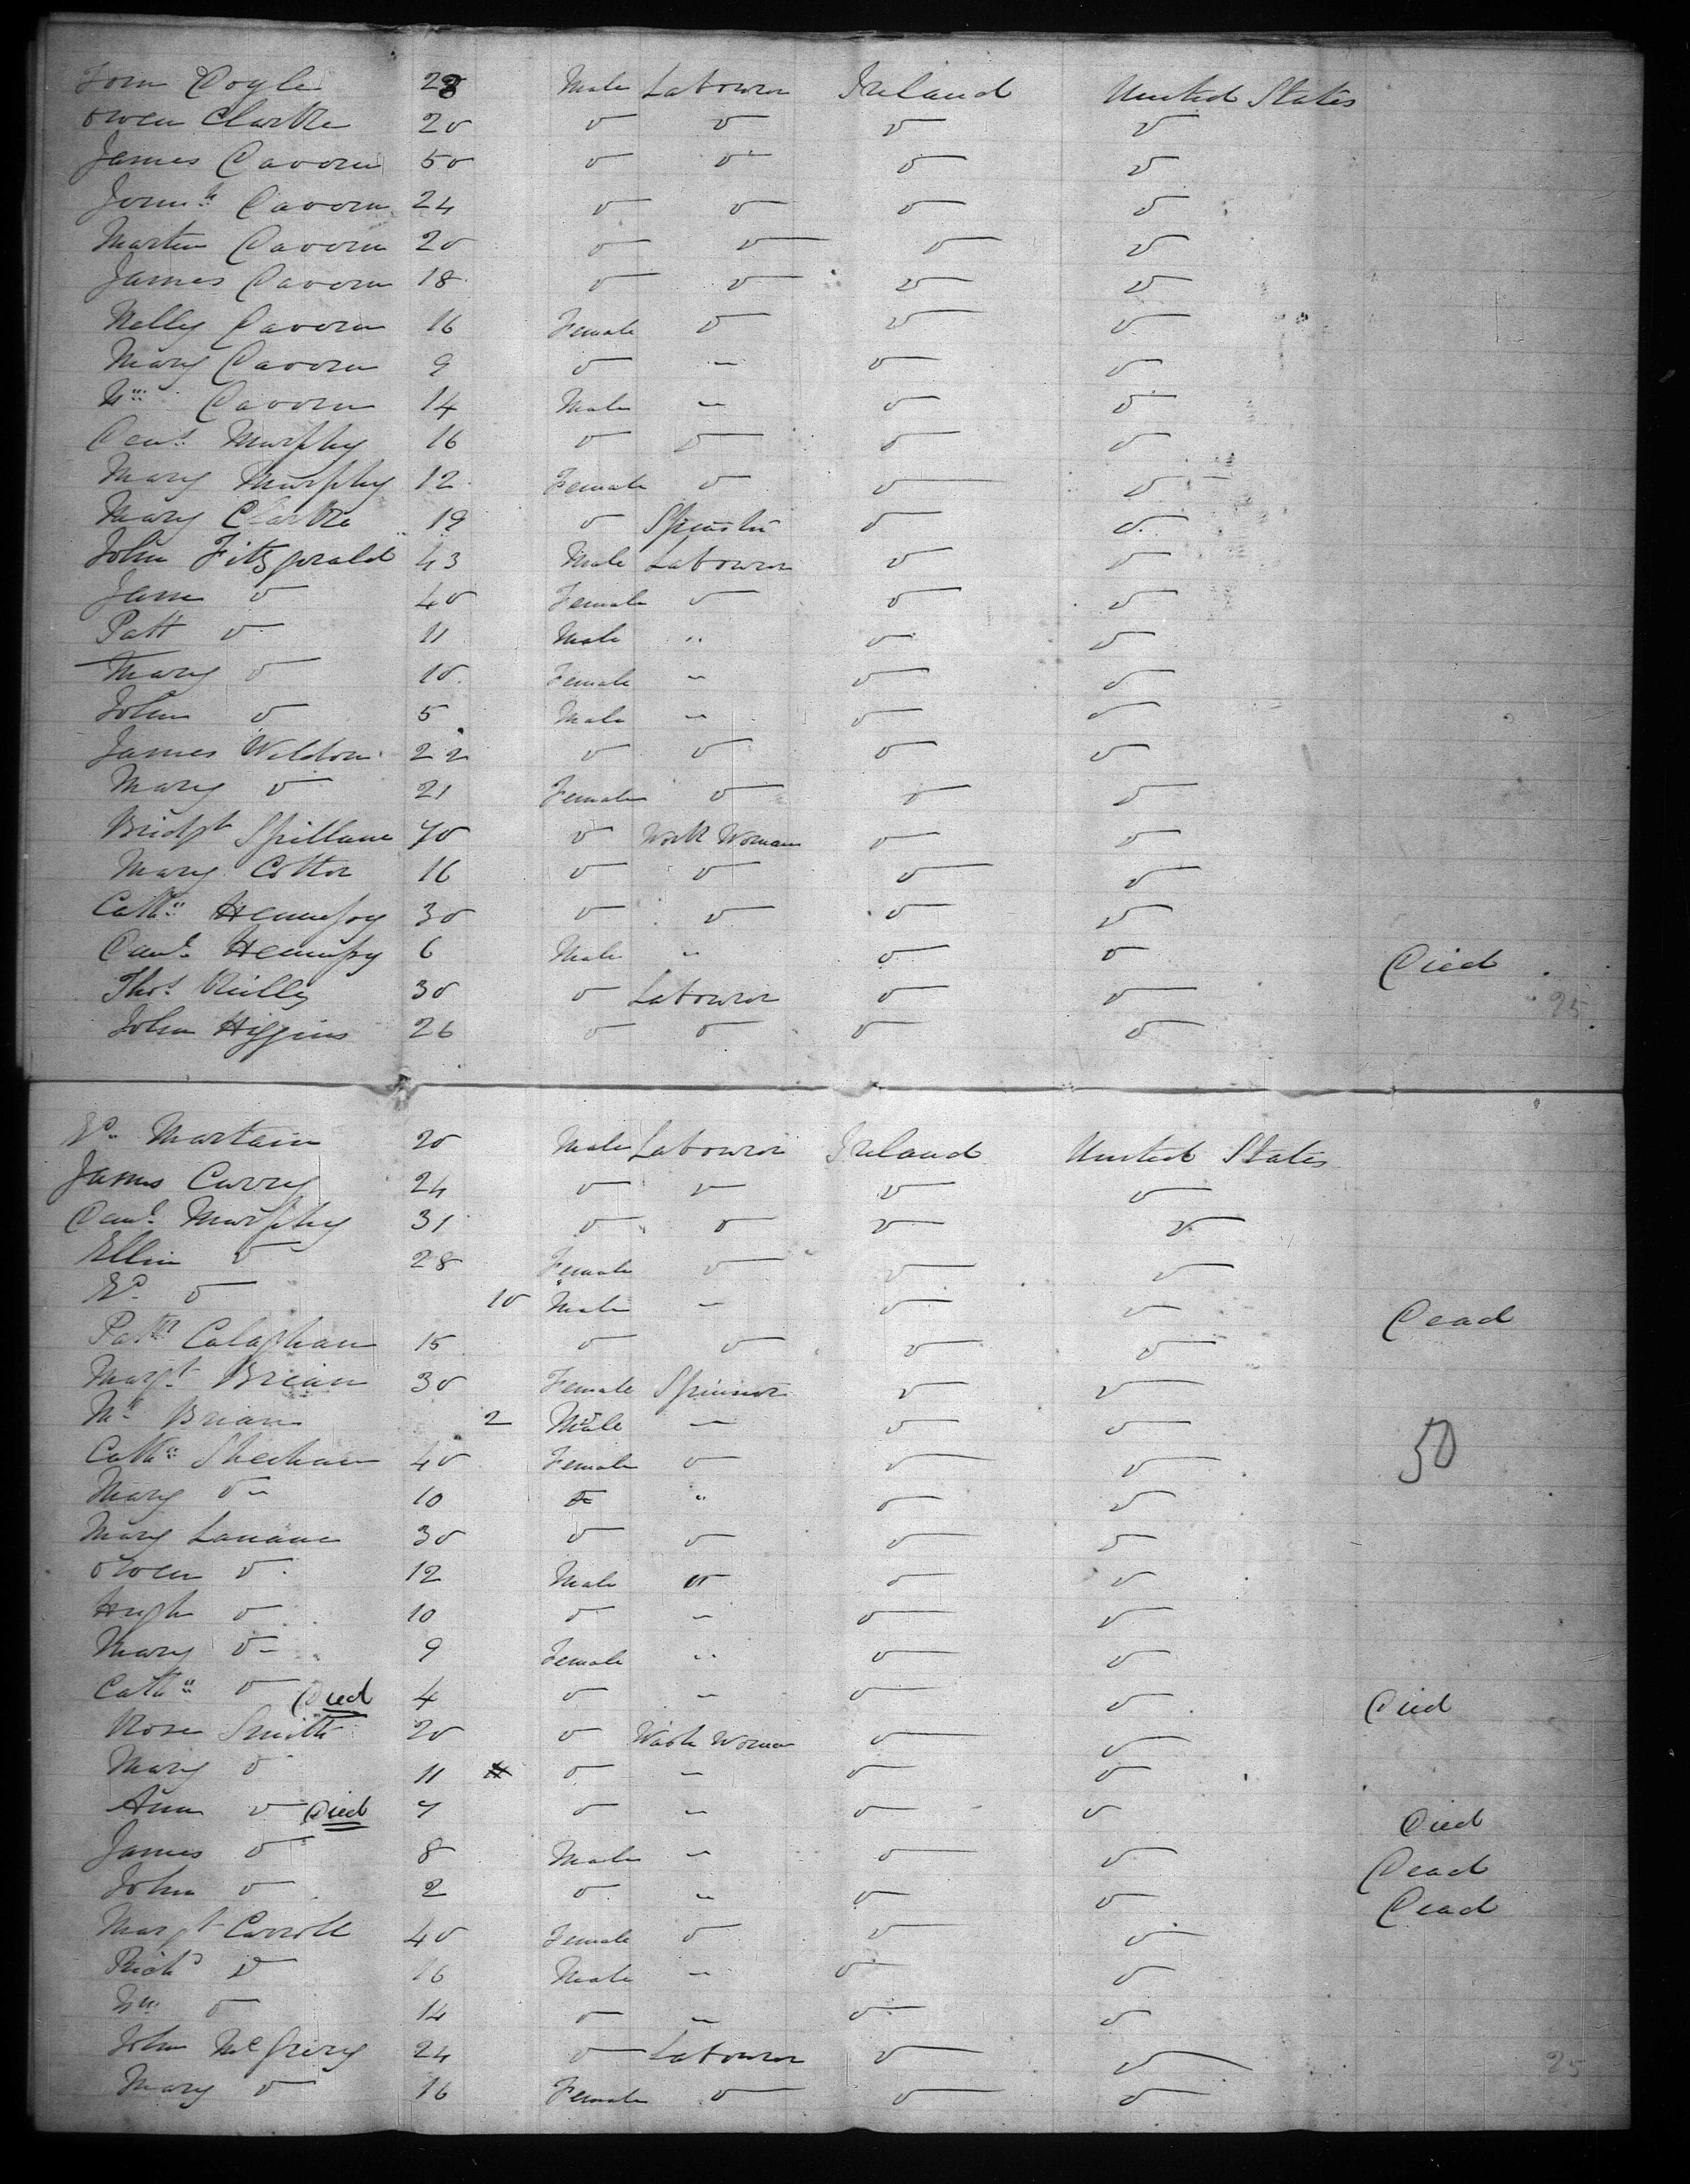 Tom Doyle 28 Male Labourer Ireland United States
Owen Clarke 20 do do do do
James Cavorn 50 do do do do
Cavorn 24 do do do do
Martin Cavorn 20 do do do do
James Cavorn 18 do do do do
Nelly Cavorn 16 Female do do do
Mary Cavorn 9 do " do do
Wm Cavorn 14 Male " do do
Danl Murphy 16 do do do do
Mary Murphy 12 Female do do do
Mary Clarke 19 do Spinster do do
John Fitzgerald 43 Male Labourer do do
Jane do 40 Female do do do
Patt do 11 Male " do do
Mary do 10 Female " do do
John do 5 Male " do do
James Weldon 22 do do do do
Mary do 21 Female do do do
Bridgt Spillane 40 do Work Woman do do
Mary Cotter 16 do do do do
Cathe Hennesy 30 do do do do
Danl Hennesy 6 Male " do do Died
Thos Reilly 30 do Labourer do do 25
John Higgins 26 do do do do
Ed Martain 20 Male Labourer Ireland United States
James Curry 24 do do do do
Danl Murphy 31 do do do do
Ellin do 28 Female do do do
Ed do 10 Male " do do Dead
Patk Calaghan 15 do do do do
Margt Brian 30 Female Spinner do do
Ml Brian 2 Male " do do
Cathe Sheehan 40 Female do do do 50
Mary do 10 do " do do
Mary Lanane 30 do do do do
Owen do 12 Male do do do
Hugh do 10 do " do do
Mary do 9 Female " do do
Cathe do Died 4 do " do do Died
Rose Smith 20 do Wash Woman do do
Mary do 11 do " do do
Ann do Died 7 do " do do Died
James do 8 Male " do do Dead
John do 2 do " do do Dead
Margt Carroll 40 Female do do do
Richd do 16 Male " do do
Wm do 14 do " do do
John McGrievy 24 do Labourer do do 25
Mary do 16 Female do do do